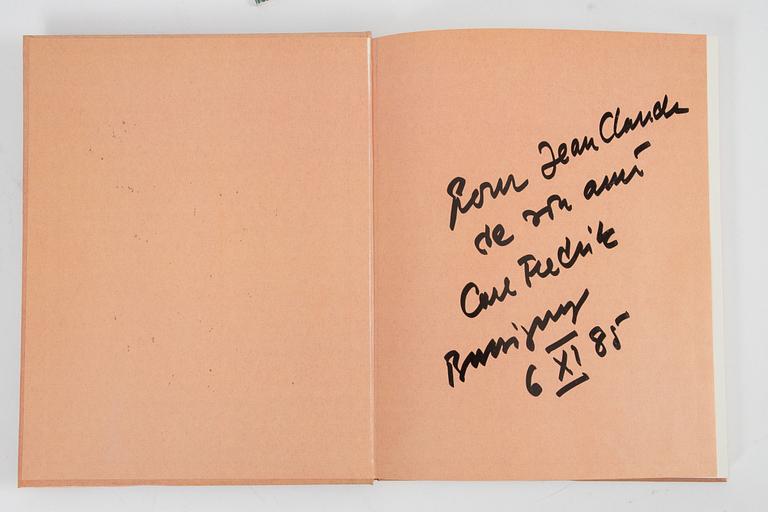 Pour Jean Claude
de son ami
Carl Fredrik
Bussigny
6 XI 85